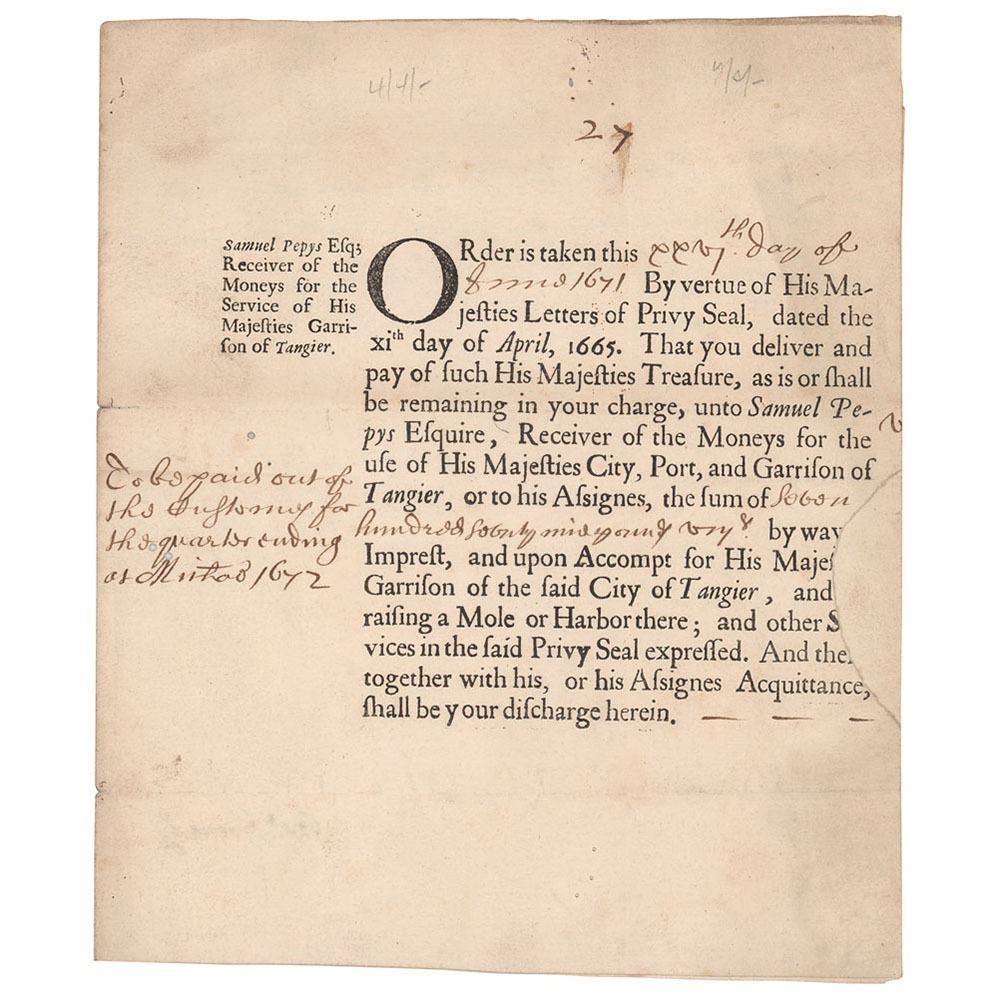 4/4/-
27
Samuel Pepys Eſq;
Receiver of the
Moneys for the
Service of His
Majeſties Garri-
ſon of Tangier.
ORder is taken this xxvjth. day of
June 1671 By vertue of His Ma-
jeſties Letters of Privy Seal, dated the
xith day of April, 1665. That you deliver and
pay of ſuch His Majeſties Treaſure, as is or ſhall
be remaining in your charge, unto Samuel Pe-
pys Eſquire, Receiver of the Moneys for the
uſe of His Majeſties City, Port, and Garriſon of
Tangier, or to his Aſsignes, the ſum of Seven
hundred seventy nine pound by way
Impreſt, and upon Accompt for His Majeſ
Garriſon of the ſaid City of Tangier, and
raiſing a Mole or Harbor there; and other S
vices in the ſaid Privy Seal expreſſed. And the
together with his, or his Aſsignes Acquittance,
ſhall be your diſcharge herein.
To be paid out of
the Customes for
the quarter ending
at Mich̃as 1672